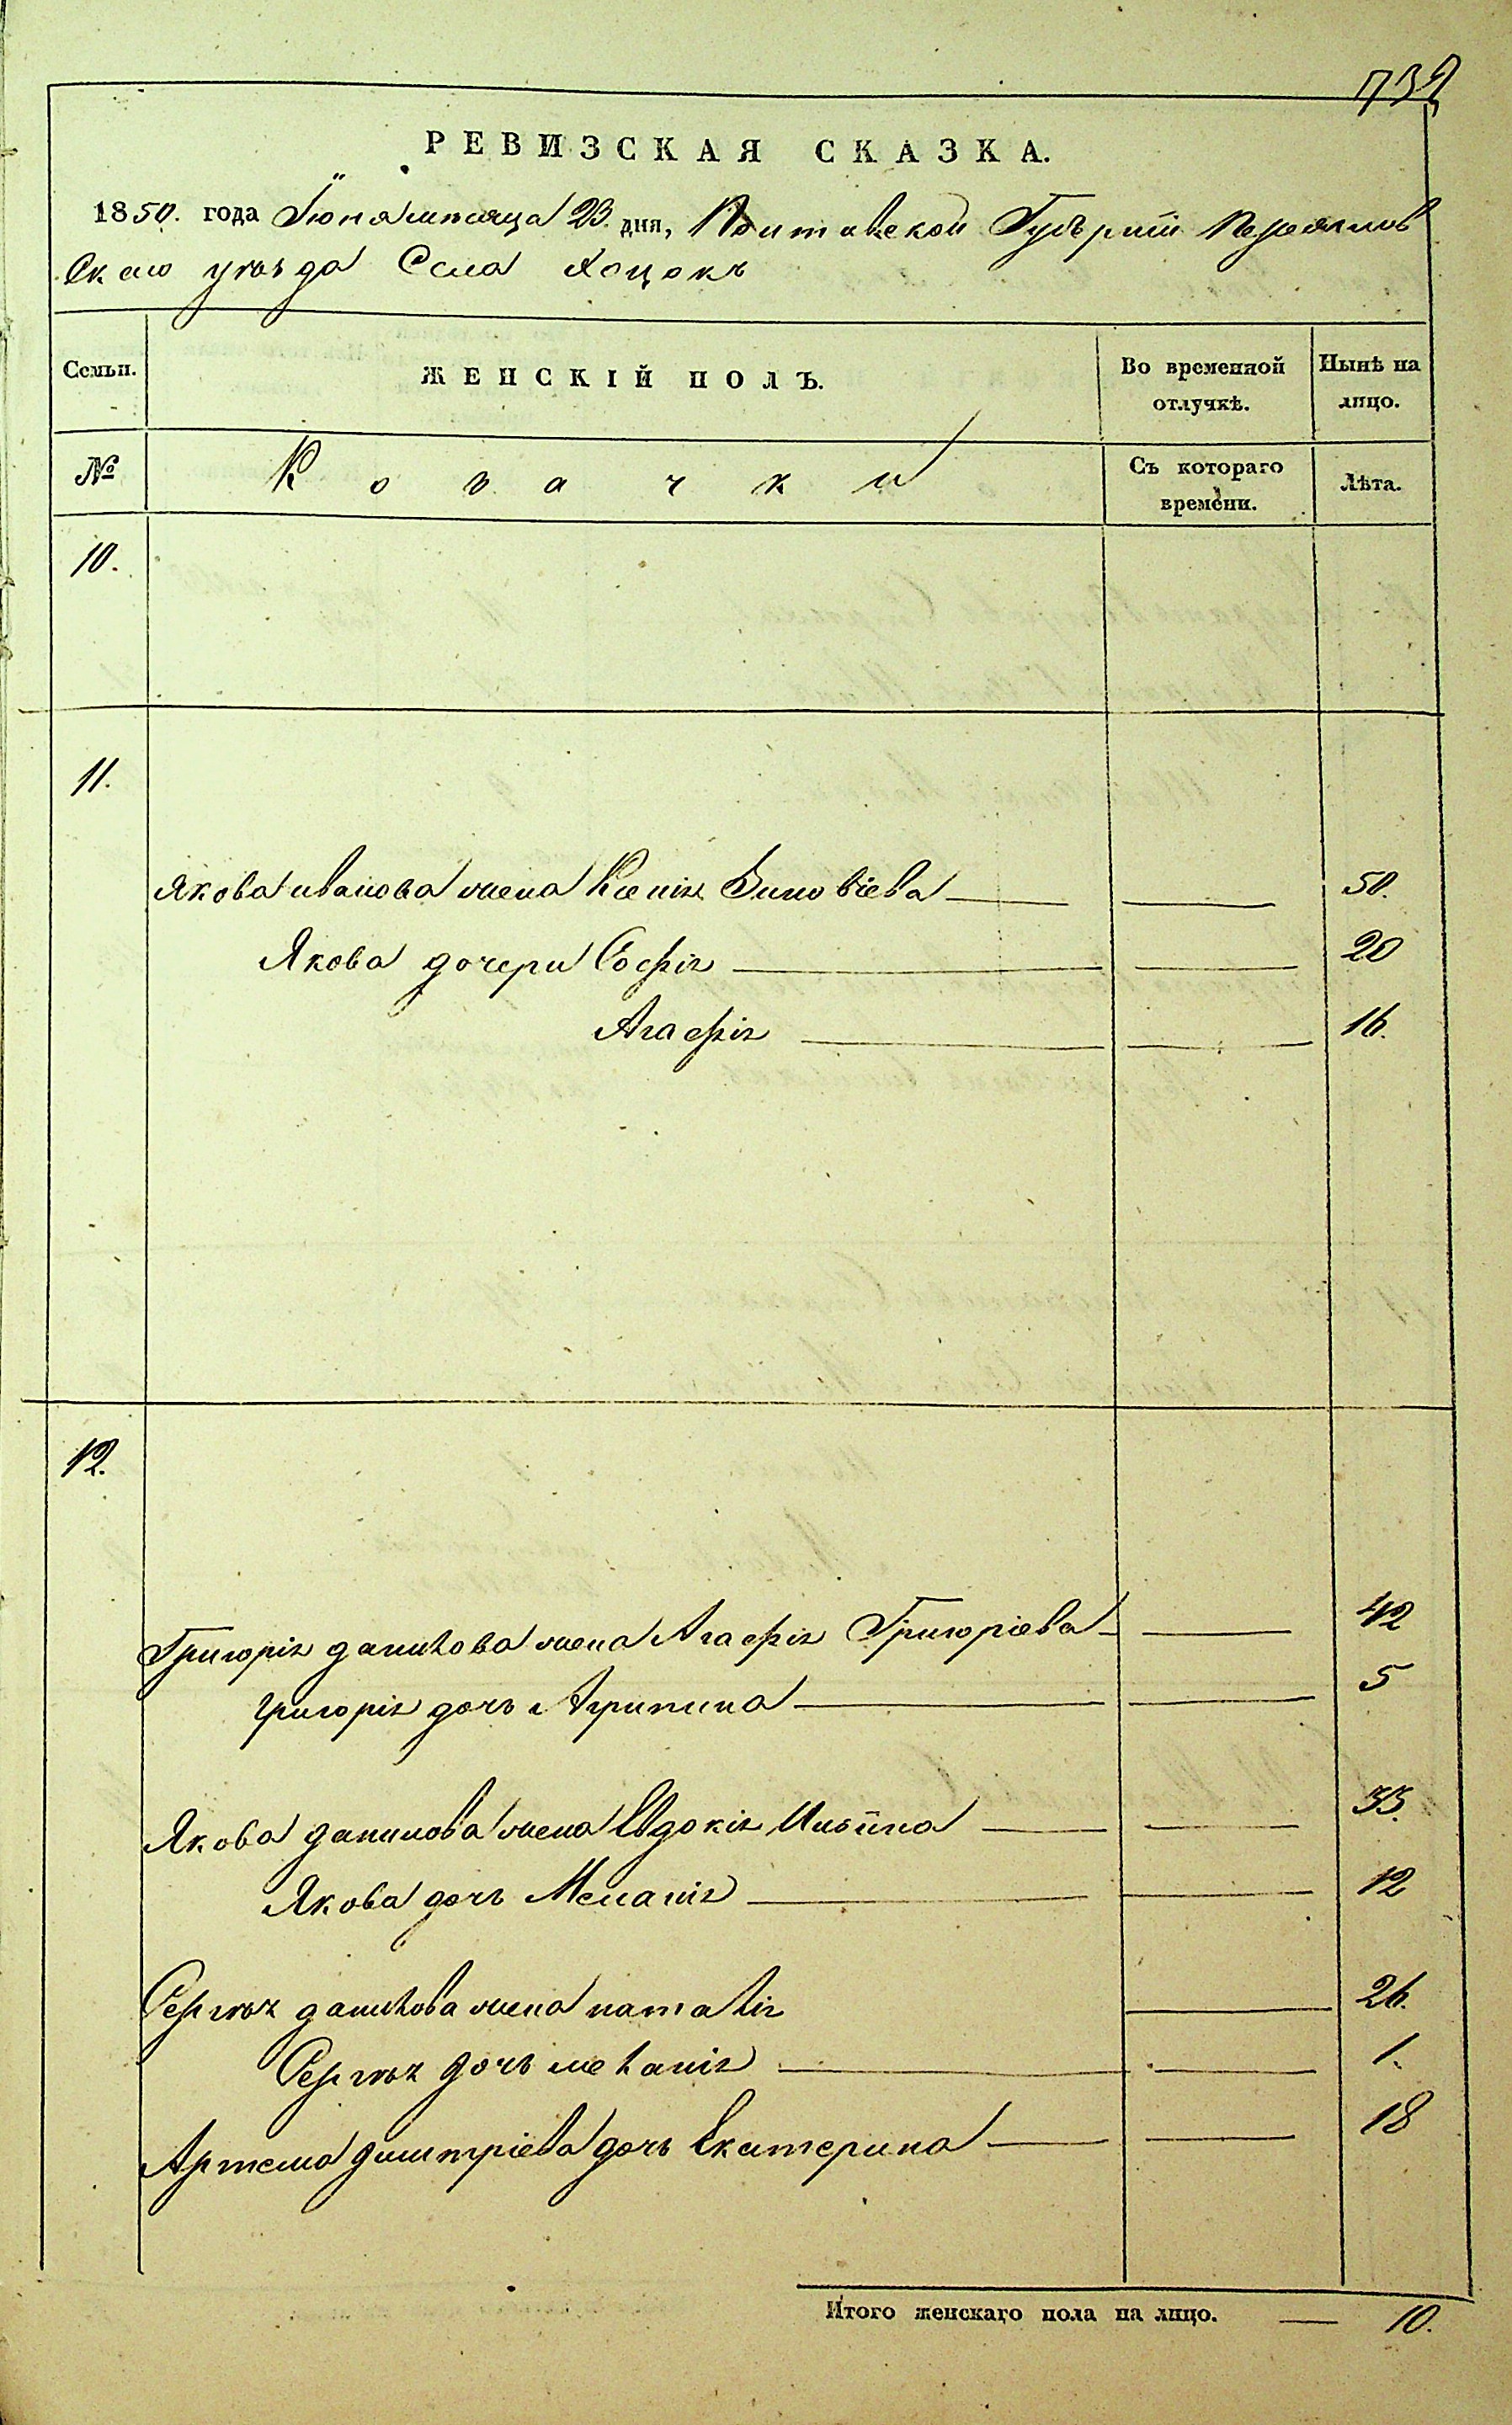 732
РЕВИЗСКАЯ СКАЗКА.
1850. года Іюня мѣсяца 23. дня, Полтавской Губерніи Переяслов
скаго уѣзда Села Хоцокъ
Семьи. ЖЕНСКІЙ ПОЛЪ. Во временной отлучкѣ. Нынѣ на лицо.
№ Козачки Съ котораго времени. Лѣта.
10.
11.
Якова иванова жена Ксенія Зиновіева 50.
Якова дочери Софія 20
Агафія 16.
12.
Григорія данилова жена Агафія Григоріева 42
григорія дочь Агрипина 5
Якова данилова жена Евдокія Ильіина 33.
Якова дочь Меланія 12
Сергѣя данилова жена наталія 26.
Сергѣя дочь меланія 1.
Артема димитріева дочь Екатерина 18
Итого женскаго пола на лицо. 10.